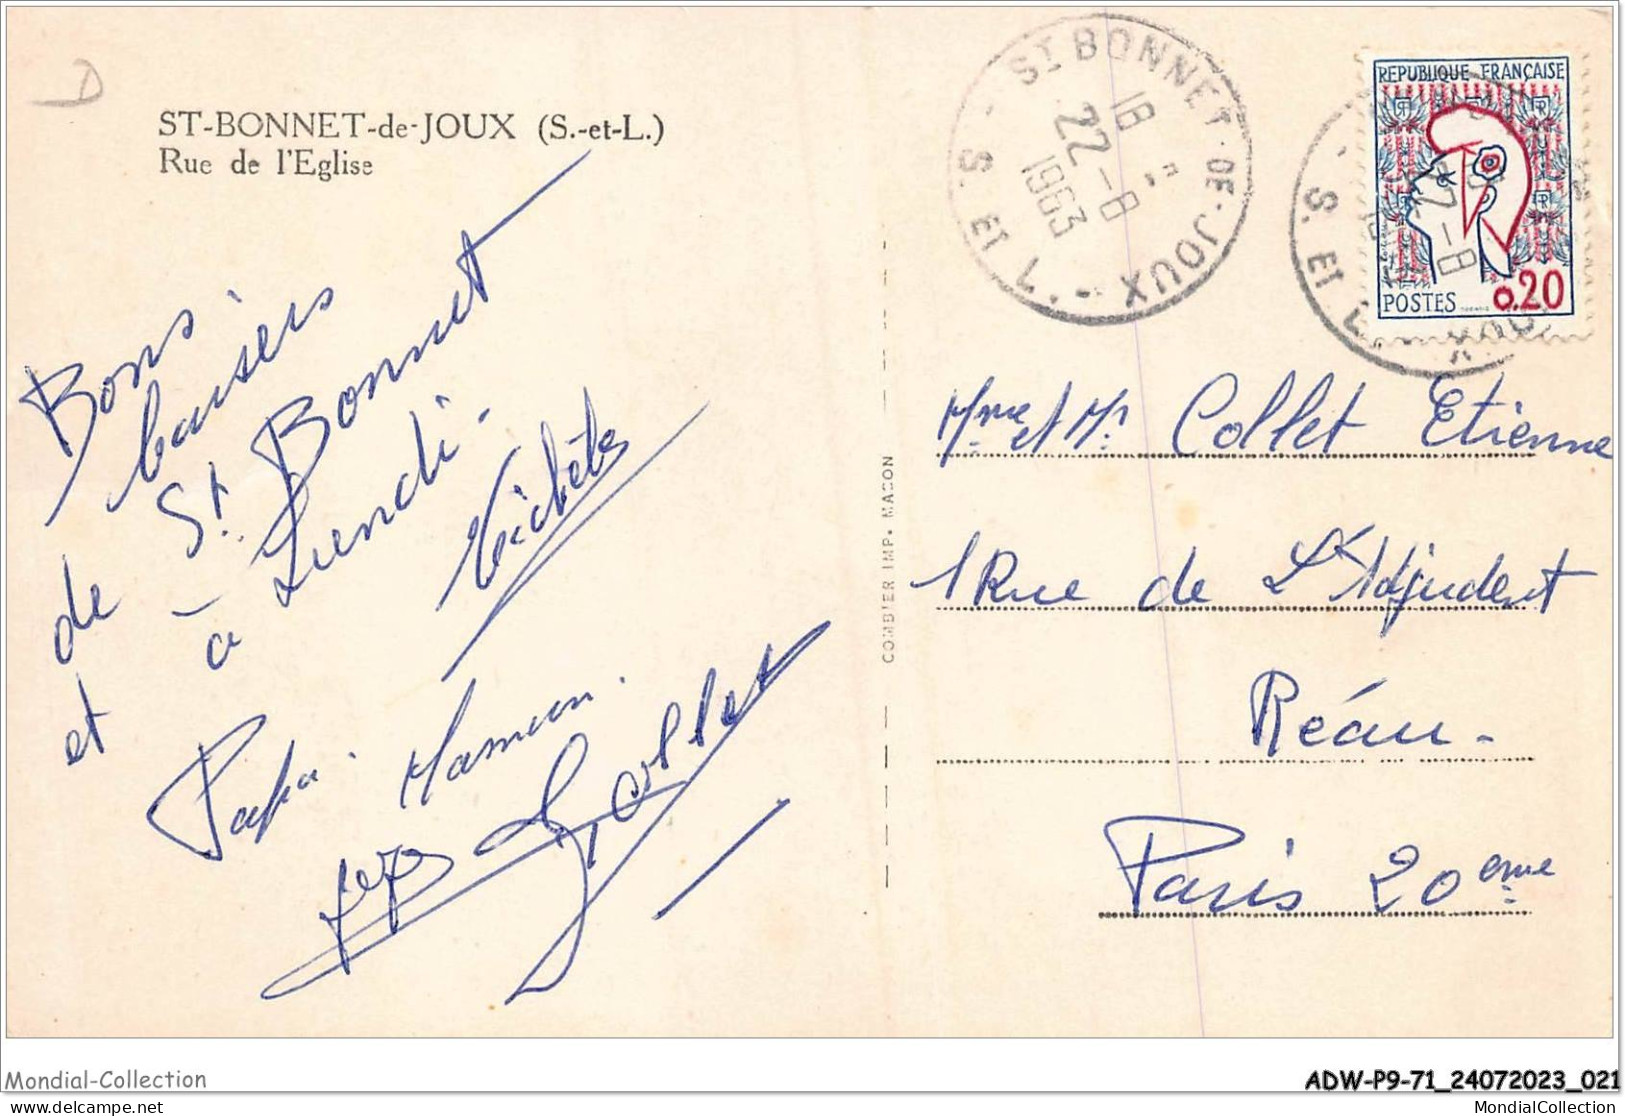 D
ST-BONNET-de-JOUX (S.-et-L.)
Rue de l'Eglise
ST BONNET-DE-JOUX
S. ET L.
18 H
22-8
1963
REPUBLIQUE FRANÇAISE
POSTES 0.20
S. ET L.
22-8
Bons
baisers
de St. Bonnet
et à Lundi.
Papa. Maman.
Collet
COMBIER IMP. MACON
Mme et Mr Collet Etienne
1 Rue de L'Adjudent
Réau-
Paris 20eme
Mondial-Collection
ADW-P9-71_24072023_021
delcampe.net
MondialCollection